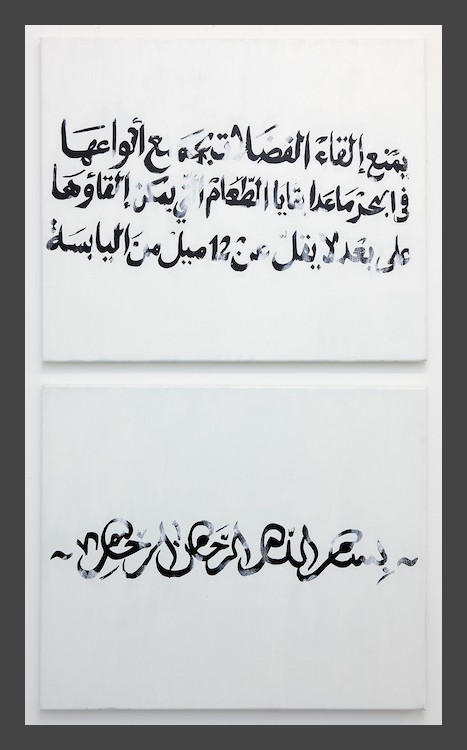 يمنع إلقاء الفضلات بجميع أنواعها
في البحر ما عدا بقايا الطعام التي يمكن إلقاؤها
على بعد لا يقل عن 12 ميل من اليابسة
~ بسم الله الرحمن الرحيم ~